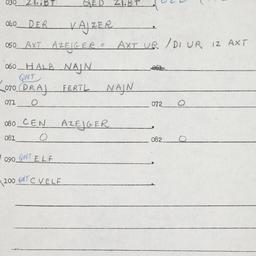 030 ZI.BT QED ZI.BT
040 DER VAJZER
050 AXT AZEJGER = AXT UR / DI UR IZ AXT
060 HALB NAJN 061
QNT
070 (DRAJ FERTL NAJN
071 O 072 O
080 CEN AZEJGER
081 O 082 O
090 QNT ELF
100 QNT CVELF